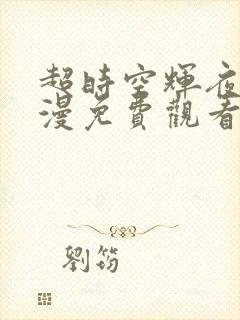 超時空輝夜
漫免費觀看
劉筠